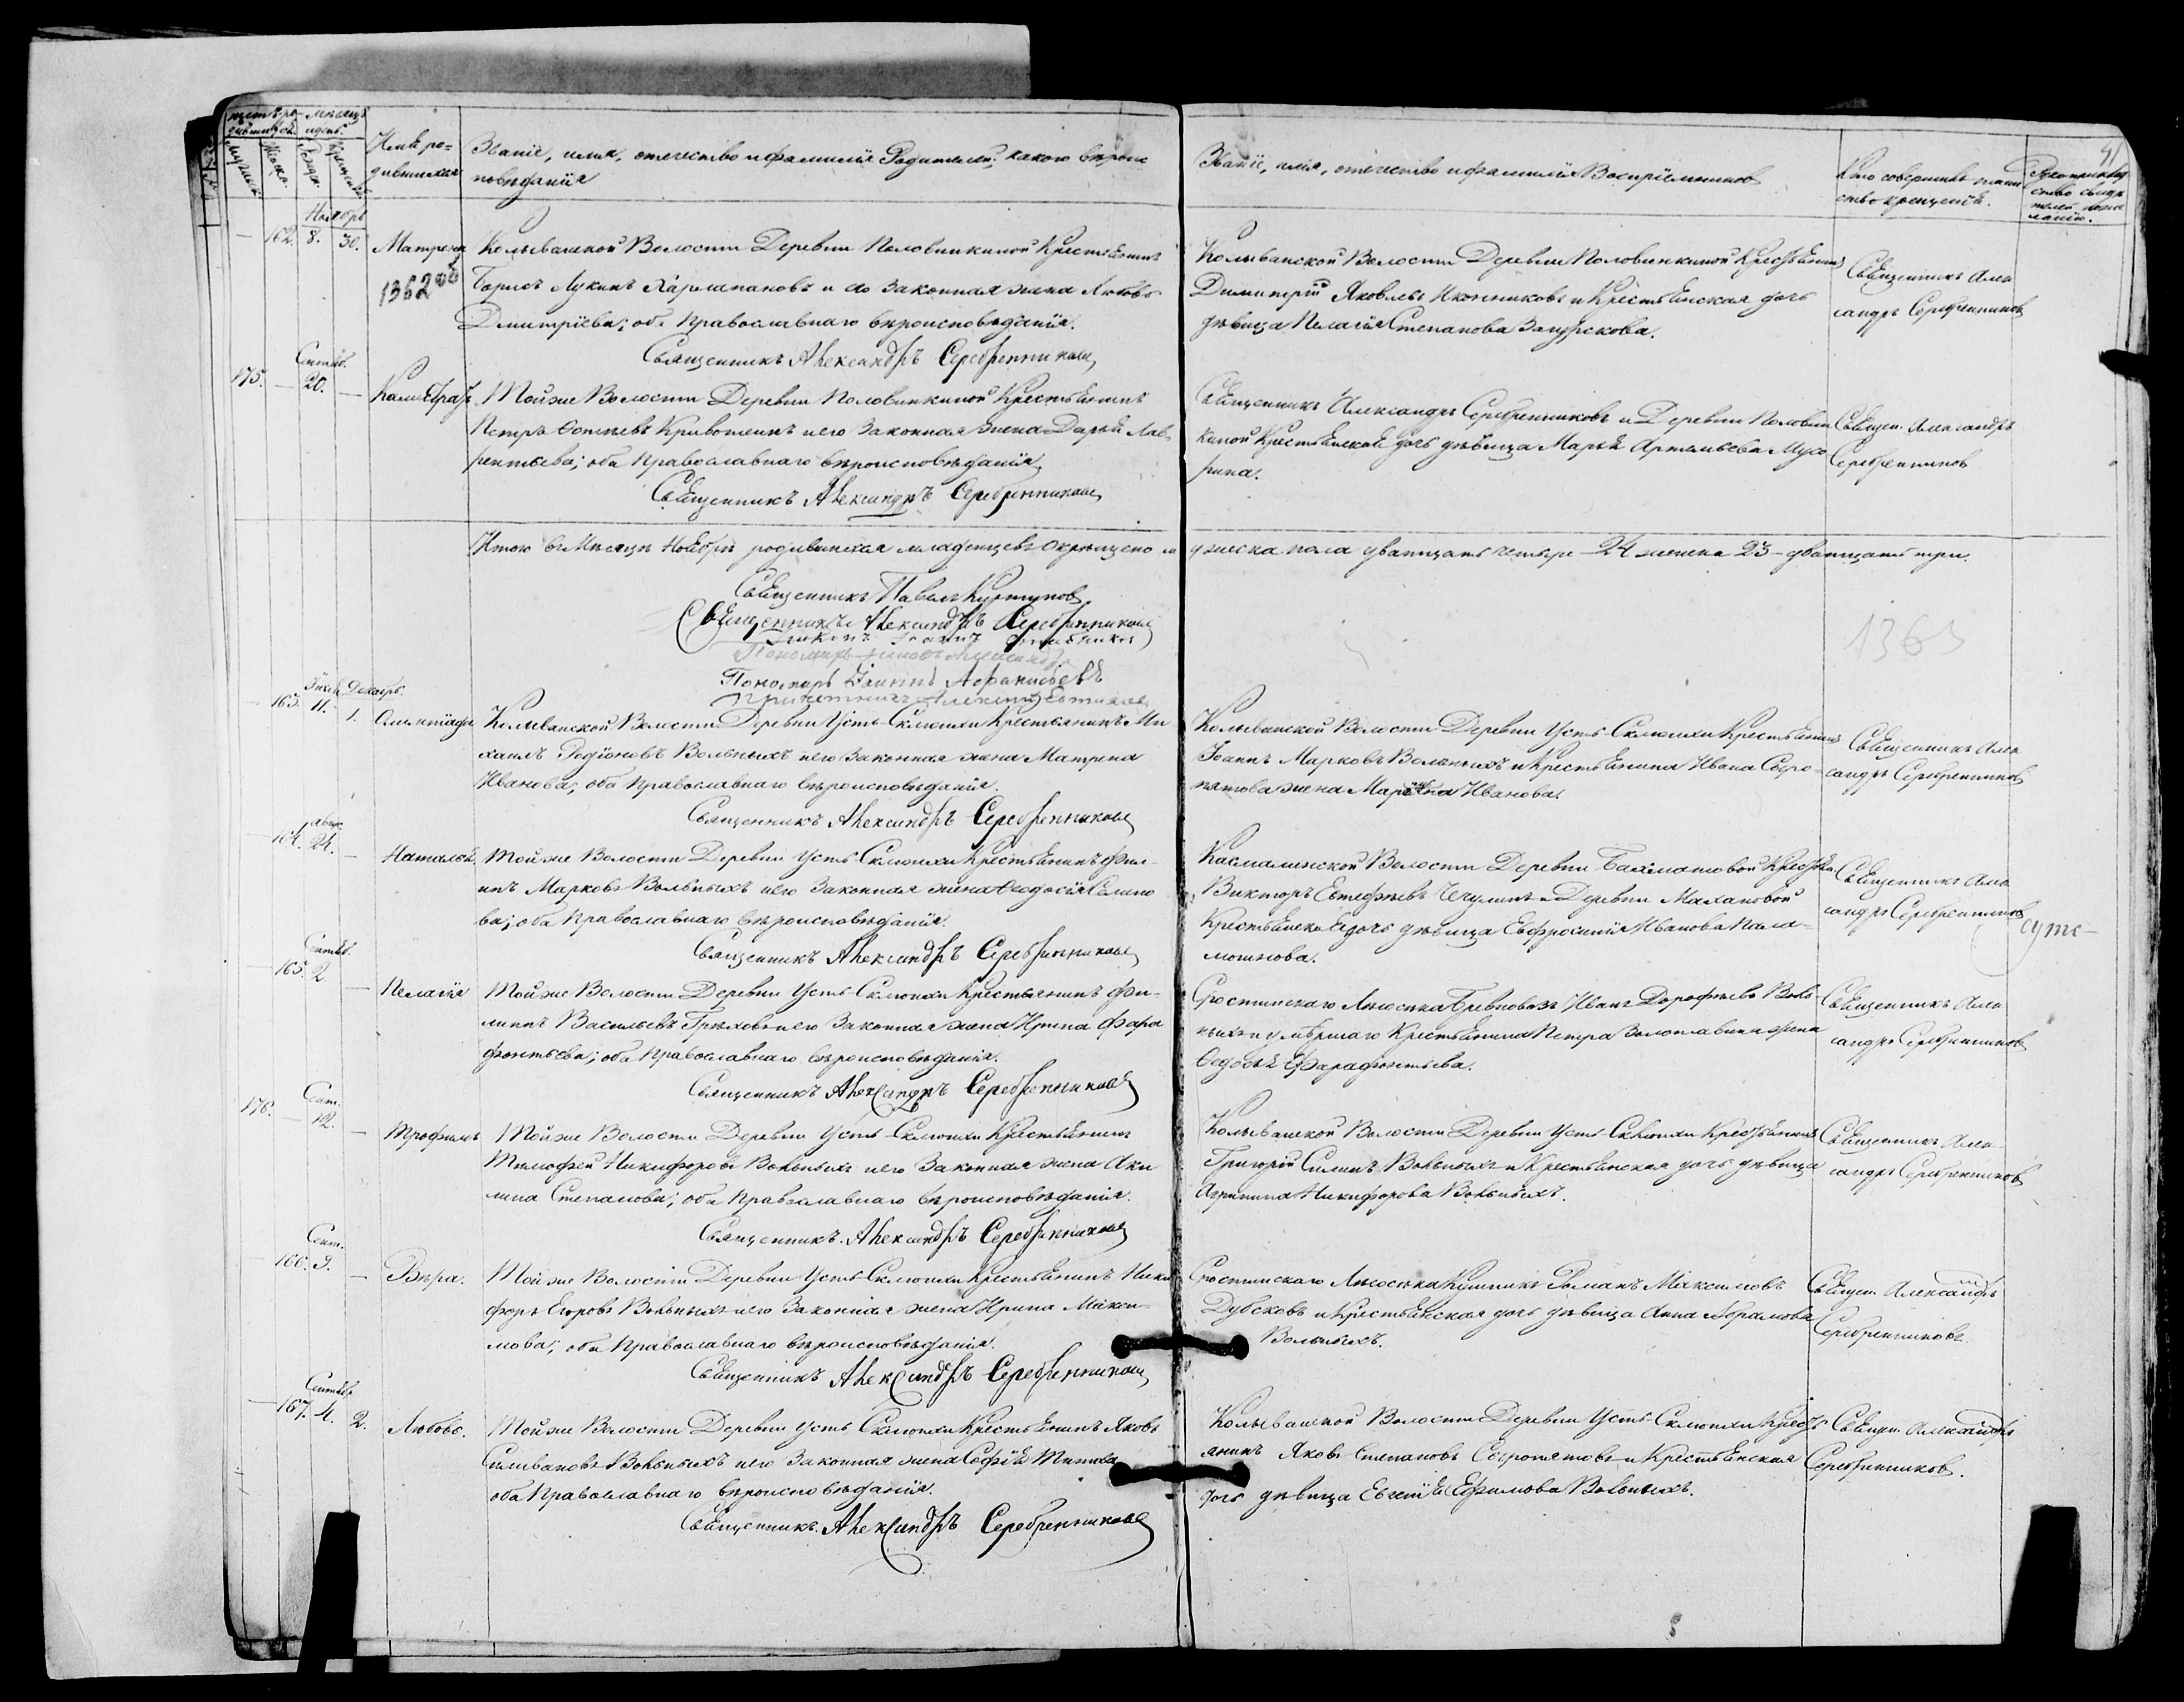 Имя ро=
дившихся
Званіе, имя, отечество и фамилія Родителей, какого вѣроис
повѣданія
Званіе, имя, отечество и фамилія Воспріемниковъ
Кто совершалъ таин
ство крещенія.
Рукоприклад
ство свидѣ
телей по же
ланію.
91
Ноябрь
162. 8. 30. Матрена
1362
Колыванской Волости Деревни Половинкиной Крестьянинъ
Борисъ Лукинъ Харлапановъ и его законная жена Любовь
Дмитріева; оба Православнаго вѣроисповѣданія.
Священникъ Александръ Серебренниковъ
Колыванской Волости Деревни Половинкиной Крестьянинъ
Димитерій Яковлевъ Иконниковъ и Крестьянская дочь
дѣвица Пелагія Степанова
Священникъ Алек
сандръ Серебренниковъ
Сентяб.
175. 20.
Тойже Волости Деревни Половинкиной Крестьянинъ
Петръ Кривошеинъ и его законная жена Дарья Лав-
рентьева; оба Православнаго вѣроисповѣданія.
Священникъ Александръ Серебренниковъ
Священникъ Александръ Серебренниковъ и Деревни Половин
киной Крестьянская дочь дѣвица Марья Артемьева Мусо
рина.
Священ. Александръ
Серебренниковъ
Итого въ Мѣсяцѣ Ноябрѣ родившихся младенцевъ окрещено м
ужеска пола дватцать четыре 24 женска 23 – дватцать три.
Священникъ Павелъ
Священникъ Александръ Серебренниковъ
Пономарь
1363
Декабрь.
163. 11. 1. Олимпіада
Колыванской Волости Деревни Усть-Склюихи Крестьянинъ Ми
хаилъ Родіоновъ Вольныхъ и его законная жена Матрена
Иванова; оба Православнаго вѣроисповѣданія.
Священникъ Александръ Серебренниковъ
Колыванской Волости Деревни Усть-Склюихи Крестьянинъ
Іоаннъ Марковъ Вольныхъ и Крестьянина Ивана Сыро-
пятова жена Иванова.
Священникъ Алек
сандръ Серебренниковъ
164. 24. Наталья
Тойже Волости Деревни Усть-Склюихи Крестьянинъ Фил-
ипъ Марковъ Вольныхъ и его законная жена Феодосія
ва; оба Православнаго вѣроисповѣданія.
Священникъ Александръ Серебренниковъ
Касмалинской Волости Деревни Бахматовой
Викторъ Евстефѣевъ и Деревни
Крестьянская дочь дѣвица Евфросинія Иванова Пала-
мошнова.
Священникъ Алек
сандръ Серебренниковъ
Сентяб.
165. 2. Пелагія
Тойже Волости Деревни Усть-Склюихи Крестьянинъ Фи-
липпъ Васильевъ Грѣховъ и его законная жена Ирина Фара
фонтьева; оба Православнаго вѣроисповѣданія.
Священникъ Александръ Серебренниковъ
Иванъ Дорофѣевъ Воль-
ныхъ и умѣршаго Крестьянина Петра жена
Федосья Фарафонтьева.
Священникъ Алек
сандръ Серебренниковъ
Сент.
176. 12. Трофимъ
Тойже Волости Деревни Усть-Склюихи Крестьянинъ
Тимофей Никифоровъ Вольныхъ и его законная жена Аку
лина Степанова; оба Православнаго вѣроисповѣданія.
Священникъ Александръ Серебренниковъ
Колыванской Волости Деревни Усть-Склюихи Крестьянинъ
Григорій Силинъ Вольныхъ и Крестьянская дочь дѣвица
Агрипина Никифорова Вольныхъ.
Священникъ Алек
сандръ Серебренниковъ
Сент.
166. 9. Вѣра.
Тойже Волости Деревни Усть-Склюихи Крестьянинъ Ники
форъ Егоровъ Вольныхъ и его законная жена Ирина Макси-
мова; оба Православнаго вѣроисповѣданія.
Священникъ Александръ Серебренниковъ
Романъ Максимовъ
Дубсковъ и Крестьянская дочь дѣвица Анна Абрамова
Вольныхъ.
Священ. Александръ
Серебренниковъ
Сентяб.
167. 4. 2. Любовь.
Тойже Волости Деревни Усть-Склюихи Крестьянинъ Яковъ
Селивановъ Вольныхъ и его законная жена Софія Титова
оба Православнаго вѣроисповѣданія.
Священникъ Александръ Серебренниковъ
Колыванской Волости Деревни Усть-Склюихи Кресть
янинъ Яковъ Степановъ Сыропятовъ и Крестьянская
дочь дѣвица Евгенія Ефимова Вольныхъ.
Священ. Александръ
Серебренниковъ.